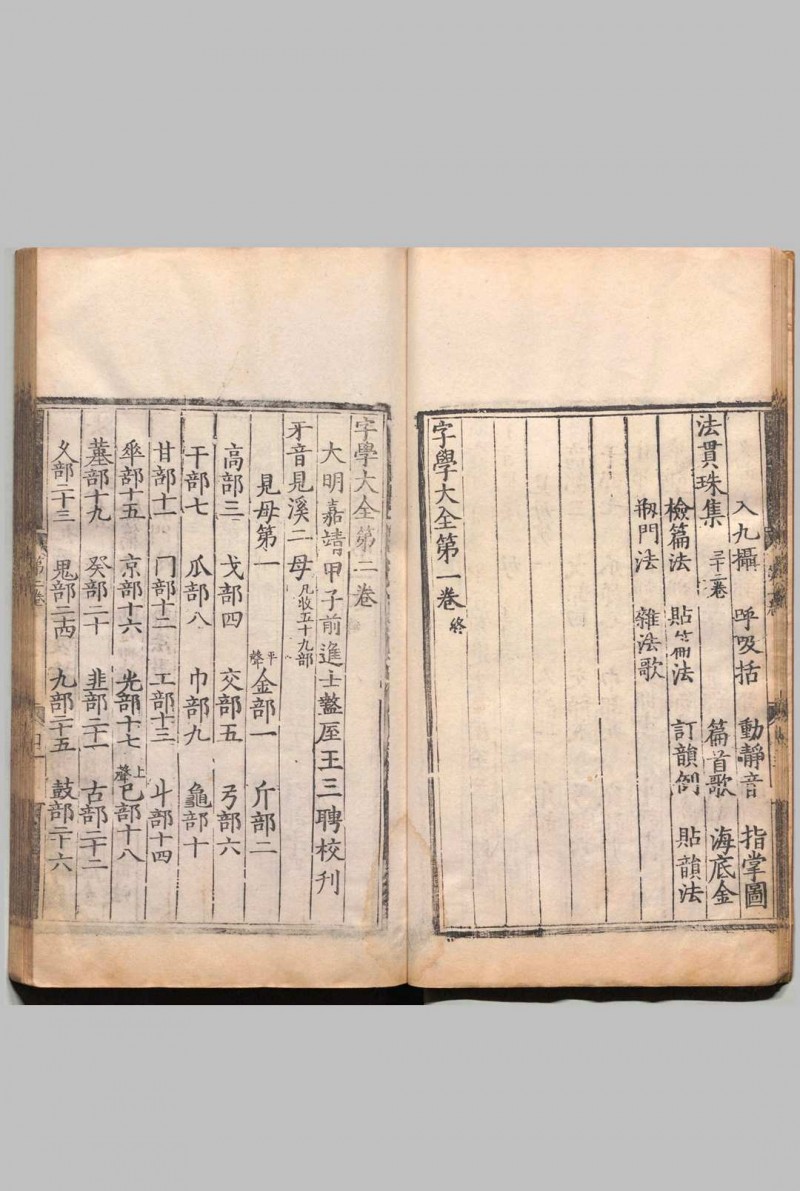 入九攝 呼吸括 動靜音 指掌圖
法貫珠集 三十二卷 篇首歌 海底金
檢篇法 貼篇法 訂韻例 貼韻法
剏門法 雜法歌
字學大全第一卷 終
字學大全第二卷
大明嘉靖甲子前進士盩厔王三聘校刊
牙音見溪二母 凡收五十九部
見母第一 平聲 金部一 斤部二
高部三 戈部四 交部五 弓部六
干部七 瓜部八 巾部九 龜部十
甘部十一 冂部十二 工部十三 斗部十四
𠦬部十五 京部十六 光部十七 上聲 己部十八
部十九 癸部二十 韭部二十一 古部二十二
久部二十三 鬼部二十四 九部二十五 鼓部二十六